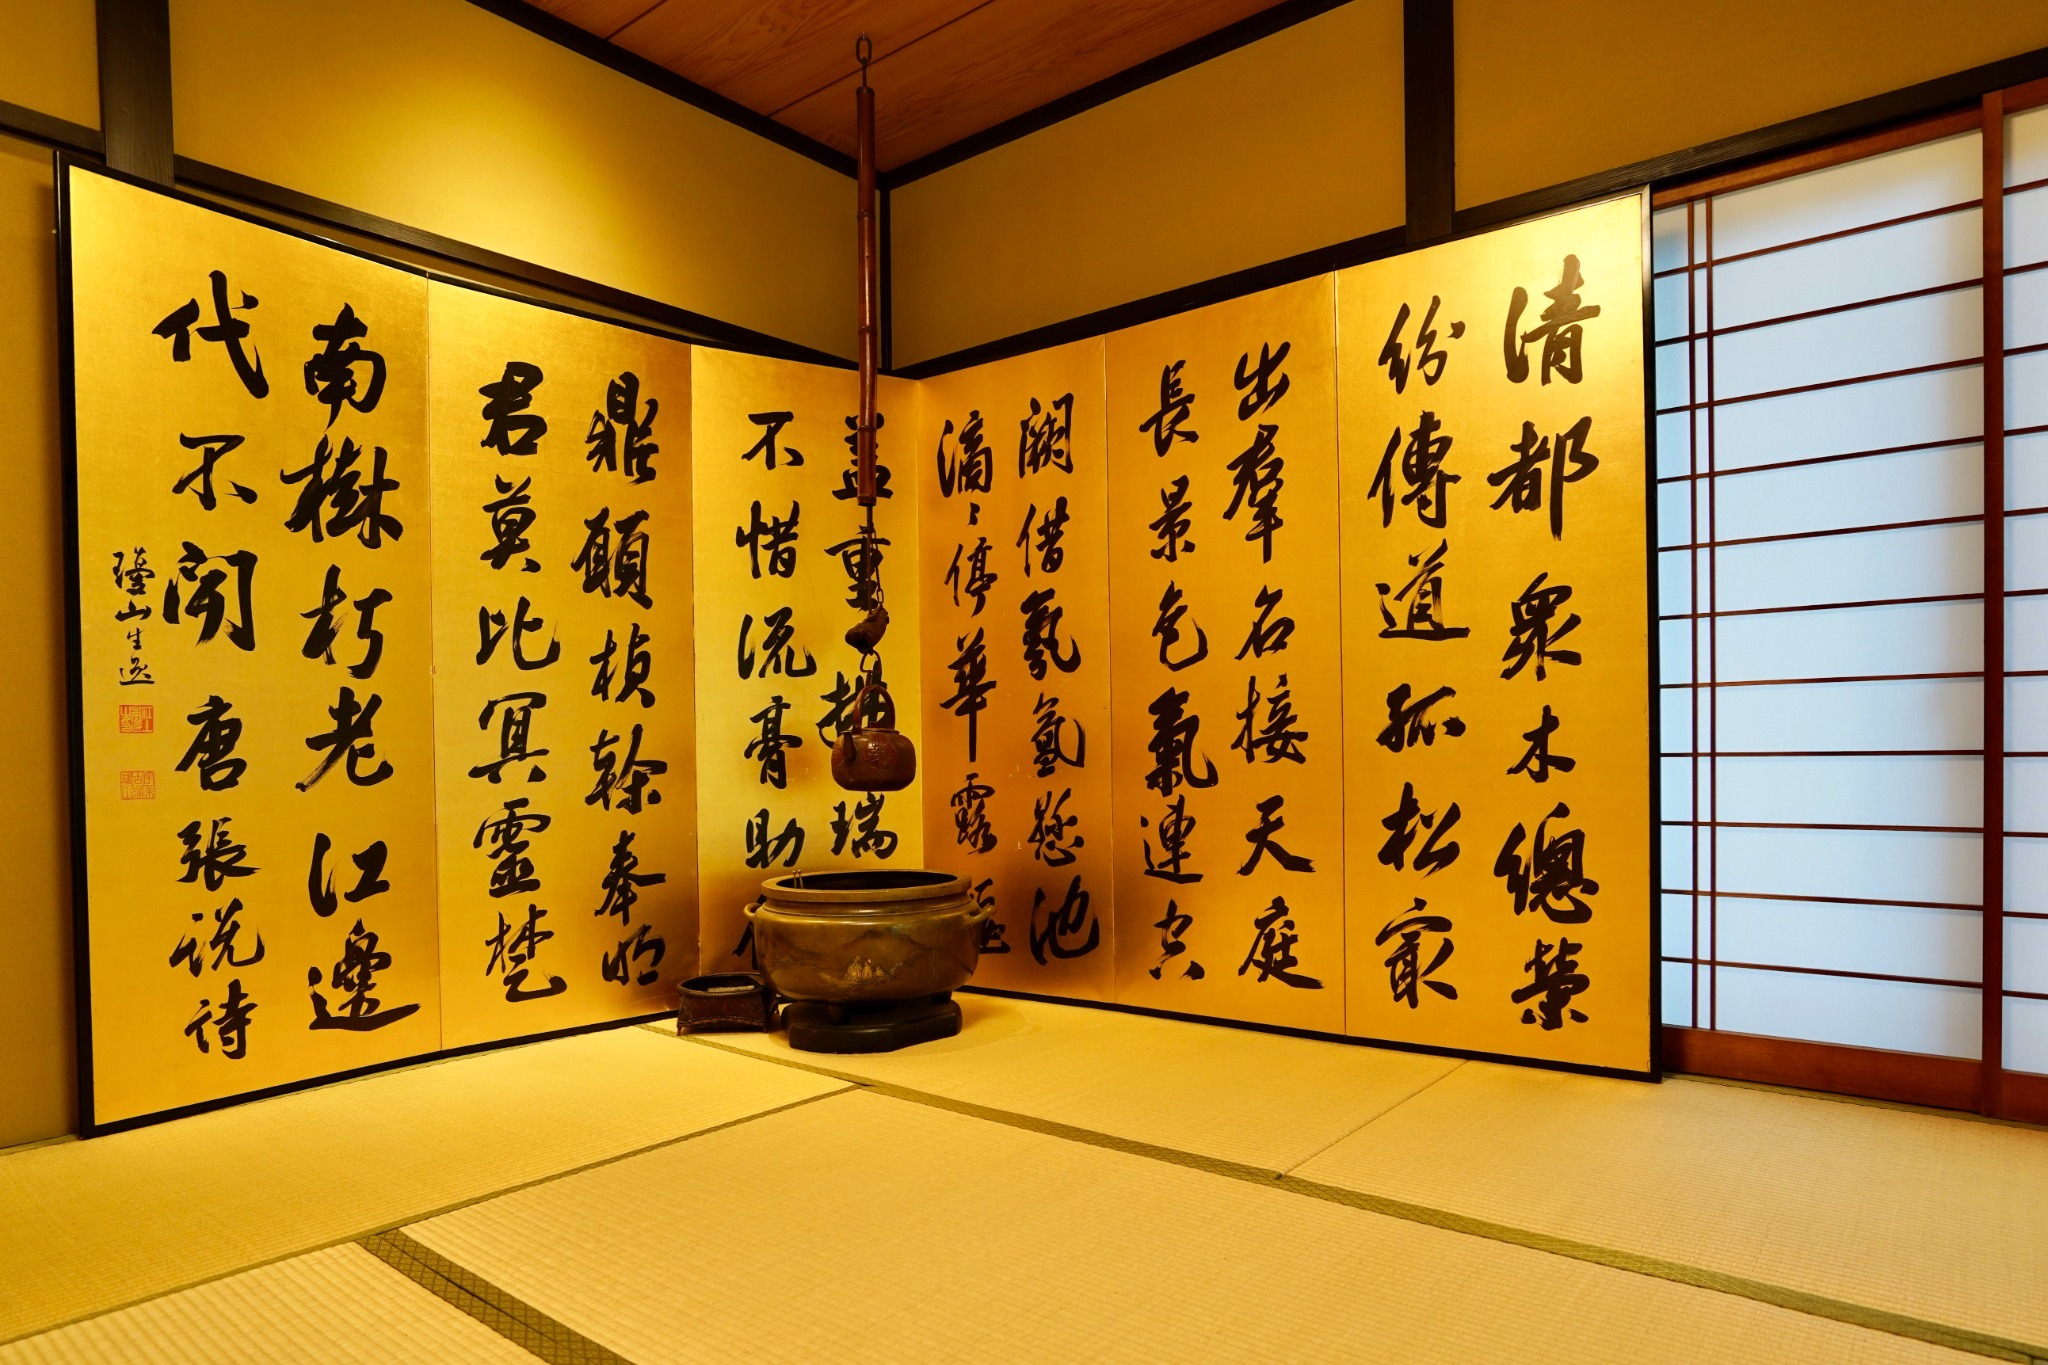 清都衆木總榮
紛傳道孤松最
出羣名接天庭
長景色氣連宮
闕借氛氳懸池
滴〻停華露偃
盖重拂瑞
不惜流膏助
鼎願楨幹奉明
君莫比冥靈楚
南樹朽老江邊
代不聞唐張説詩
山生